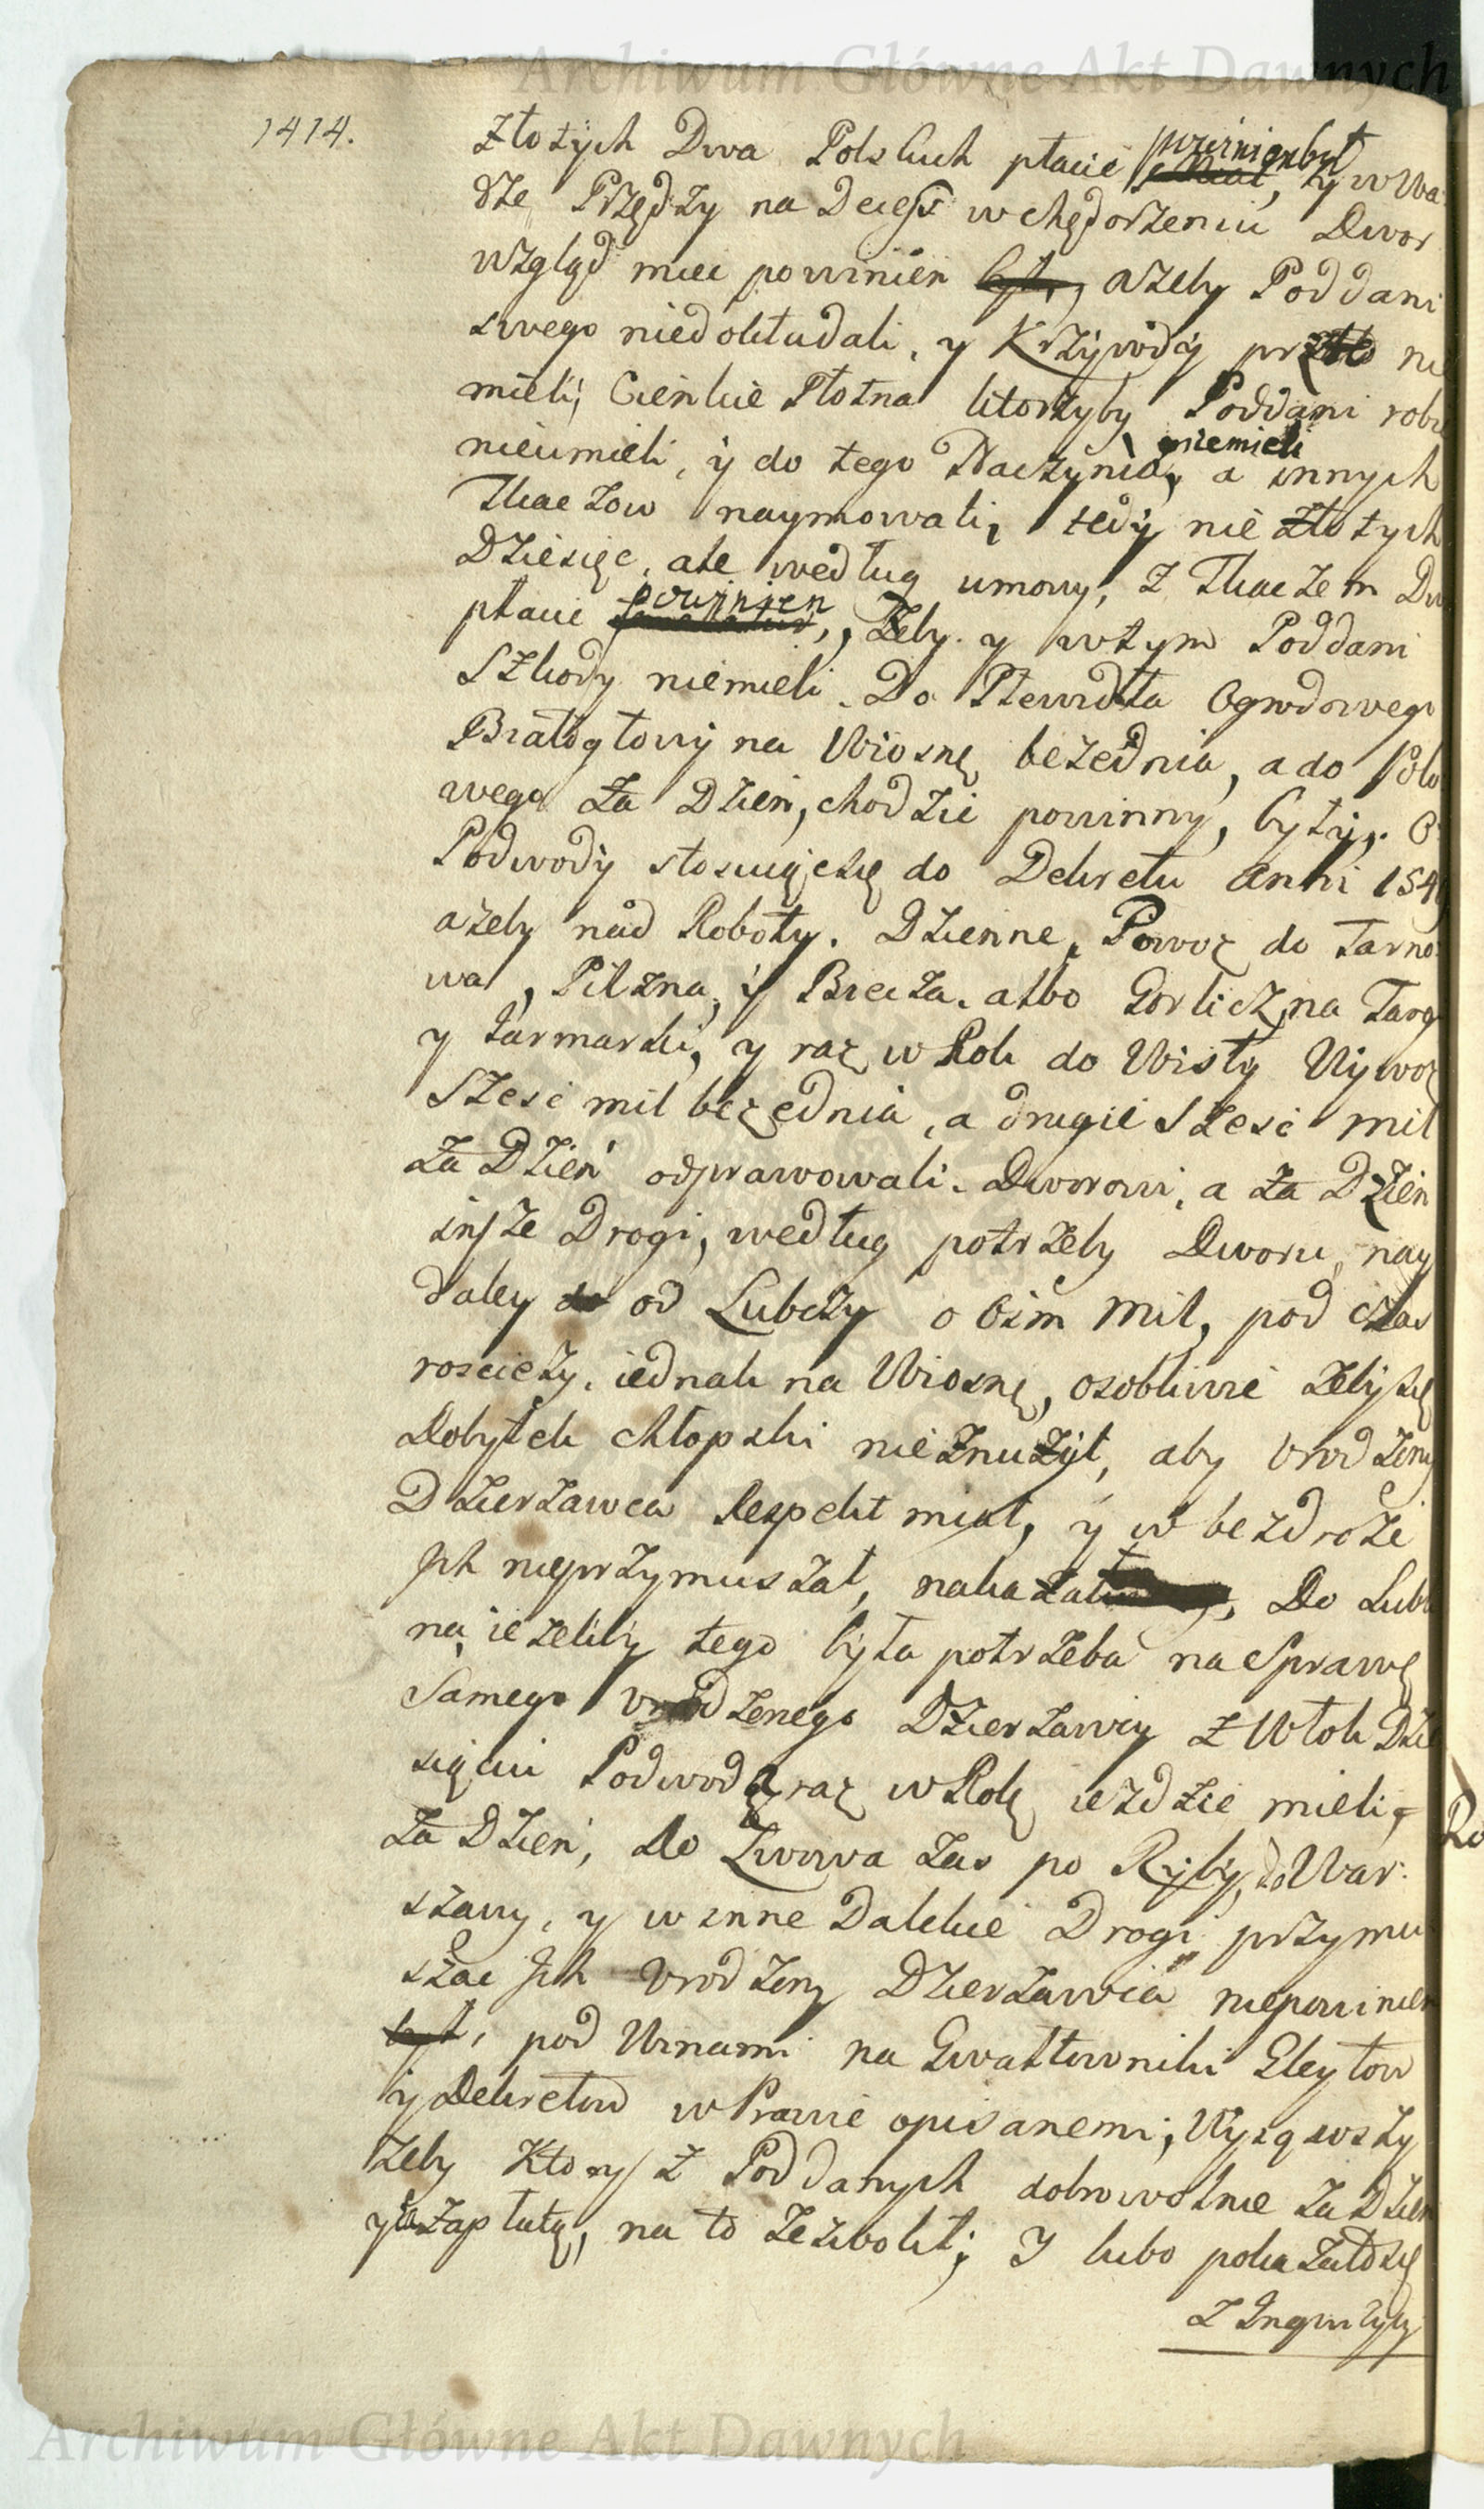 Archiwum Główne Akt Dawnych
1414.
Złotych Dwa Polskich płacić powinien był, y w Wa
dze Przędzy na Decess w chędorzeniu Dwor
wzgląd miec powinien był, ażeby Poddani
swego niedokładali, y Krzywdy przto nie
mieli; Cienkie Płotna ktorzyby Poddani robic
nieumieli, y do tego Naczynia niemieli, a innych
Tkaczow naymowali, tedy nie złotych
Dziesięc, ale według umowy, z Tkaczem Dw
płacic powinien, Zeby y wtym Poddani
Szkody niemieli. Do Plewidła Ogrodowego
Białogłowy na Wiosnę bezednia, a do Polo
wego za Dzien, chodzic powinny, były. O
Podwody stosuiącsię do Dekretu Anni 154
ażeby nad Roboty Dzienne, Powoz do Tarno
wa, Pilzna, y Biecza, albo Gorlicz, na Targ
y Jarmarki, y raz w Rok do Wisły Wywoz
Szesc mil bezednia, a drugie Szesc mil
za Dzien odprawowali Dworowi, a za Dzien
insze Drogi, według potrzeby Dworu, nay
daley do od Lubczy o Osm mil, pod czas
roscieży, iednak na Wiosnę, osobliwie żebysię
Dobytek chłopski nieznużył, aby Vrodzony
Dzierzawca Respekt miał, y w bezdroże
Jch nieprzymuszał, nakazał, Do Lubli
na, ieżeliby tego była potrzeba na Sprawę
Samego Vrodzenego Dzierzawcy z Włok Dzie
sięciu Podwodą raz w Rok ieździc mieli,
za Dzien, do Lwowa zas po Ryby, do War:
szawy, y w inne Dalekie Drogi przymu
szac Jch Vrodzony Dzierzawca niepowinien
był, pod Winami na Gwałtowniki Gleytow
y Dekretow w Prawie opisanemi; Wyiąwszy
żeby Ktory z Poddanych dobrowolnie za Dzien
y za zapłatę, na to zezwolił; Y lubo pokazałosię
z Inqwizycyi
Archiwum Główne Akt Dawnych